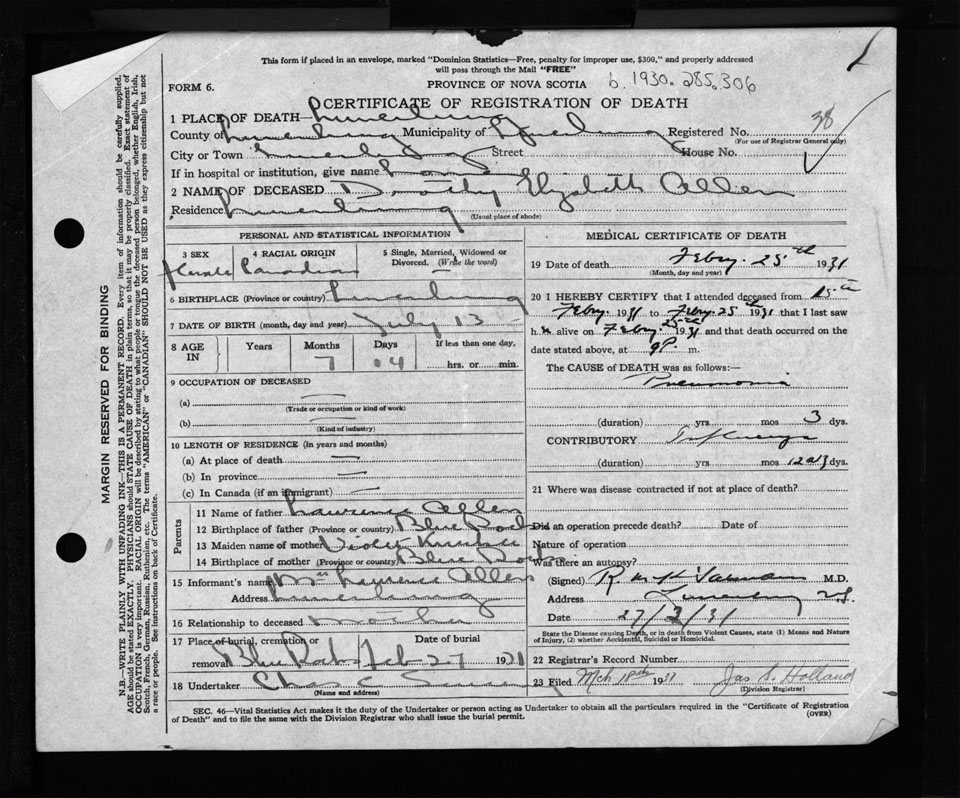 This form if placed in an envelope, marked "Dominion Statistics—Free, penalty for improper use, $300," and properly addressed
will pass through the Mail "FREE"
FORM 6.
PROVINCE OF NOVA SCOTIA
b. 1930. 285.306
CERTIFICATE OF REGISTRATION OF DEATH
1 PLACE OF DEATH— Lunenburg
County of Lunenburg Municipality of Lunenburg Registered No. 38
(For use of Registrar General only)
City or Town Lunenburg Street House No.
If in hospital or institution, give name
2 NAME OF DECEASED Dorothy Elizabeth Allen
Residence Lunenburg
(Usual place of abode)
PERSONAL AND STATISTICAL INFORMATION
3 SEX 4 RACIAL ORIGIN 5 Single, Married, Widowed or
Divorced. (Write the word)
Female Canadian
6 BIRTHPLACE (Province or country) Lunenburg
7 DATE OF BIRTH (month, day and year) July 13
8 AGE IN Years Months Days If less than one day,
7 14 hrs. or min.
9 OCCUPATION OF DECEASED
(a)
(Trade or occupation or kind of work)
(b)
(Kind of industry)
10 LENGTH OF RESIDENCE (in years and months)
(a) At place of death
(b) In province
(c) In Canada (if an immigrant)
Parents
11 Name of father Lawrence Allen
12 Birthplace of father (Province or country) Blue Rocks
13 Maiden name of mother Violet
14 Birthplace of mother (Province or country) Blue Rocks
15 Informant's name Mrs Lawrence Allen
Address Lunenburg
16 Relationship to deceased Mother
17 Place of burial, cremation or Date of burial
removal Blue Rocks Feb 27 1931
18 Undertaker Chas E
(Name and address)
MEDICAL CERTIFICATE OF DEATH
19 Date of death Febry. 25th 1931
(Month, day and year)
20 I HEREBY CERTIFY that I attended deceased from 15th
Febry. 1931 to Febry. 25th 1931 that I last saw
h er alive on Febry. 25th 1931 and that death occurred on the
date stated above, at 9P. m.
The CAUSE of DEATH was as follows:—
Pneumonia
(duration) yrs mos 3 dys.
CONTRIBUTORY Influenza
(duration) yrs mos 12 dys.
21 Where was disease contracted if not at place of death?
Did an operation precede death? Date of
Nature of operation
Was there an autopsy?
(Signed) M.D.
Address Lunenburg NS.
Date 27/2/31
State the Disease causing Death, or in death from Violent Causes, state (1) Means and Nature
of Injury, (2) whether Accidental, Suicidal or Homicidal.
22 Registrar's Record Number
23 Filed Mch 18th 1931 Jas S. Holland
(Division Registrar)
SEC. 46—Vital Statistics Act makes it the duty of the Undertaker or person acting as Undertaker to obtain all the particulars required in the "Certificate of Registration
of Death" and to file the same with the Division Registrar who shall issue the burial permit.
(OVER)
MARGIN RESERVED FOR BINDING
N.B.—WRITE PLAINLY WITH UNFADING INK—THIS IS A PERMANENT RECORD. Every item of information should be carefully supplied.
AGE should be stated EXACTLY. PHYSICIANS should STATE CAUSE OF DEATH in plain terms, so that it may be properly classified. Exact statement of
OCCUPATION is very important. RACIAL ORIGIN will be described by stating to what people or tongue the deceased person belonged, whether English, Irish,
Scotch, French, German, Russian, Ruthenian, etc. The terms "AMERICAN" or "CANADIAN" SHOULD NOT BE USED as they express citizenship but not
a race or people. See instructions on back of Certificate.